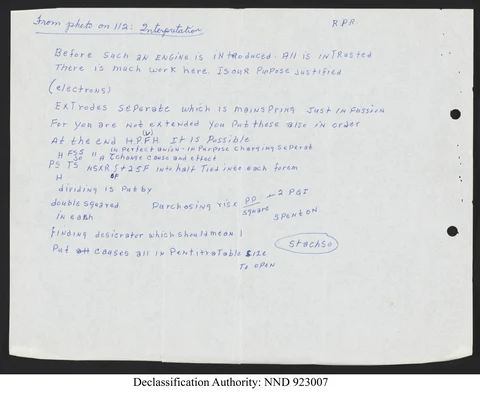 From photo on 112: Interpretation
R.P.R.
Before Such an Engine is Introduced. All is inTrusted
There is much work here. Is our Purpose justified
(electrons)
ExTrodes Seperate which is mainspring Just in Fassion
For you are not extended you Put these also in order
(V)
At the end H.P.F.H. It is Possible
H FSS " in Perfect union - in Purpose Charging Seperat
30 A Tchange cause and effect
PS TS ASXR St 25F into half Tied into each forem
H OF
dividing is Put by
double squared Purchasing risk PD 2 PGI
square
in each SPENT ON
finding desicrator which should mean 1
Stachso
Put all causes all in Pentitratable Size
To OPEN
Declassification Authority: NND 923007